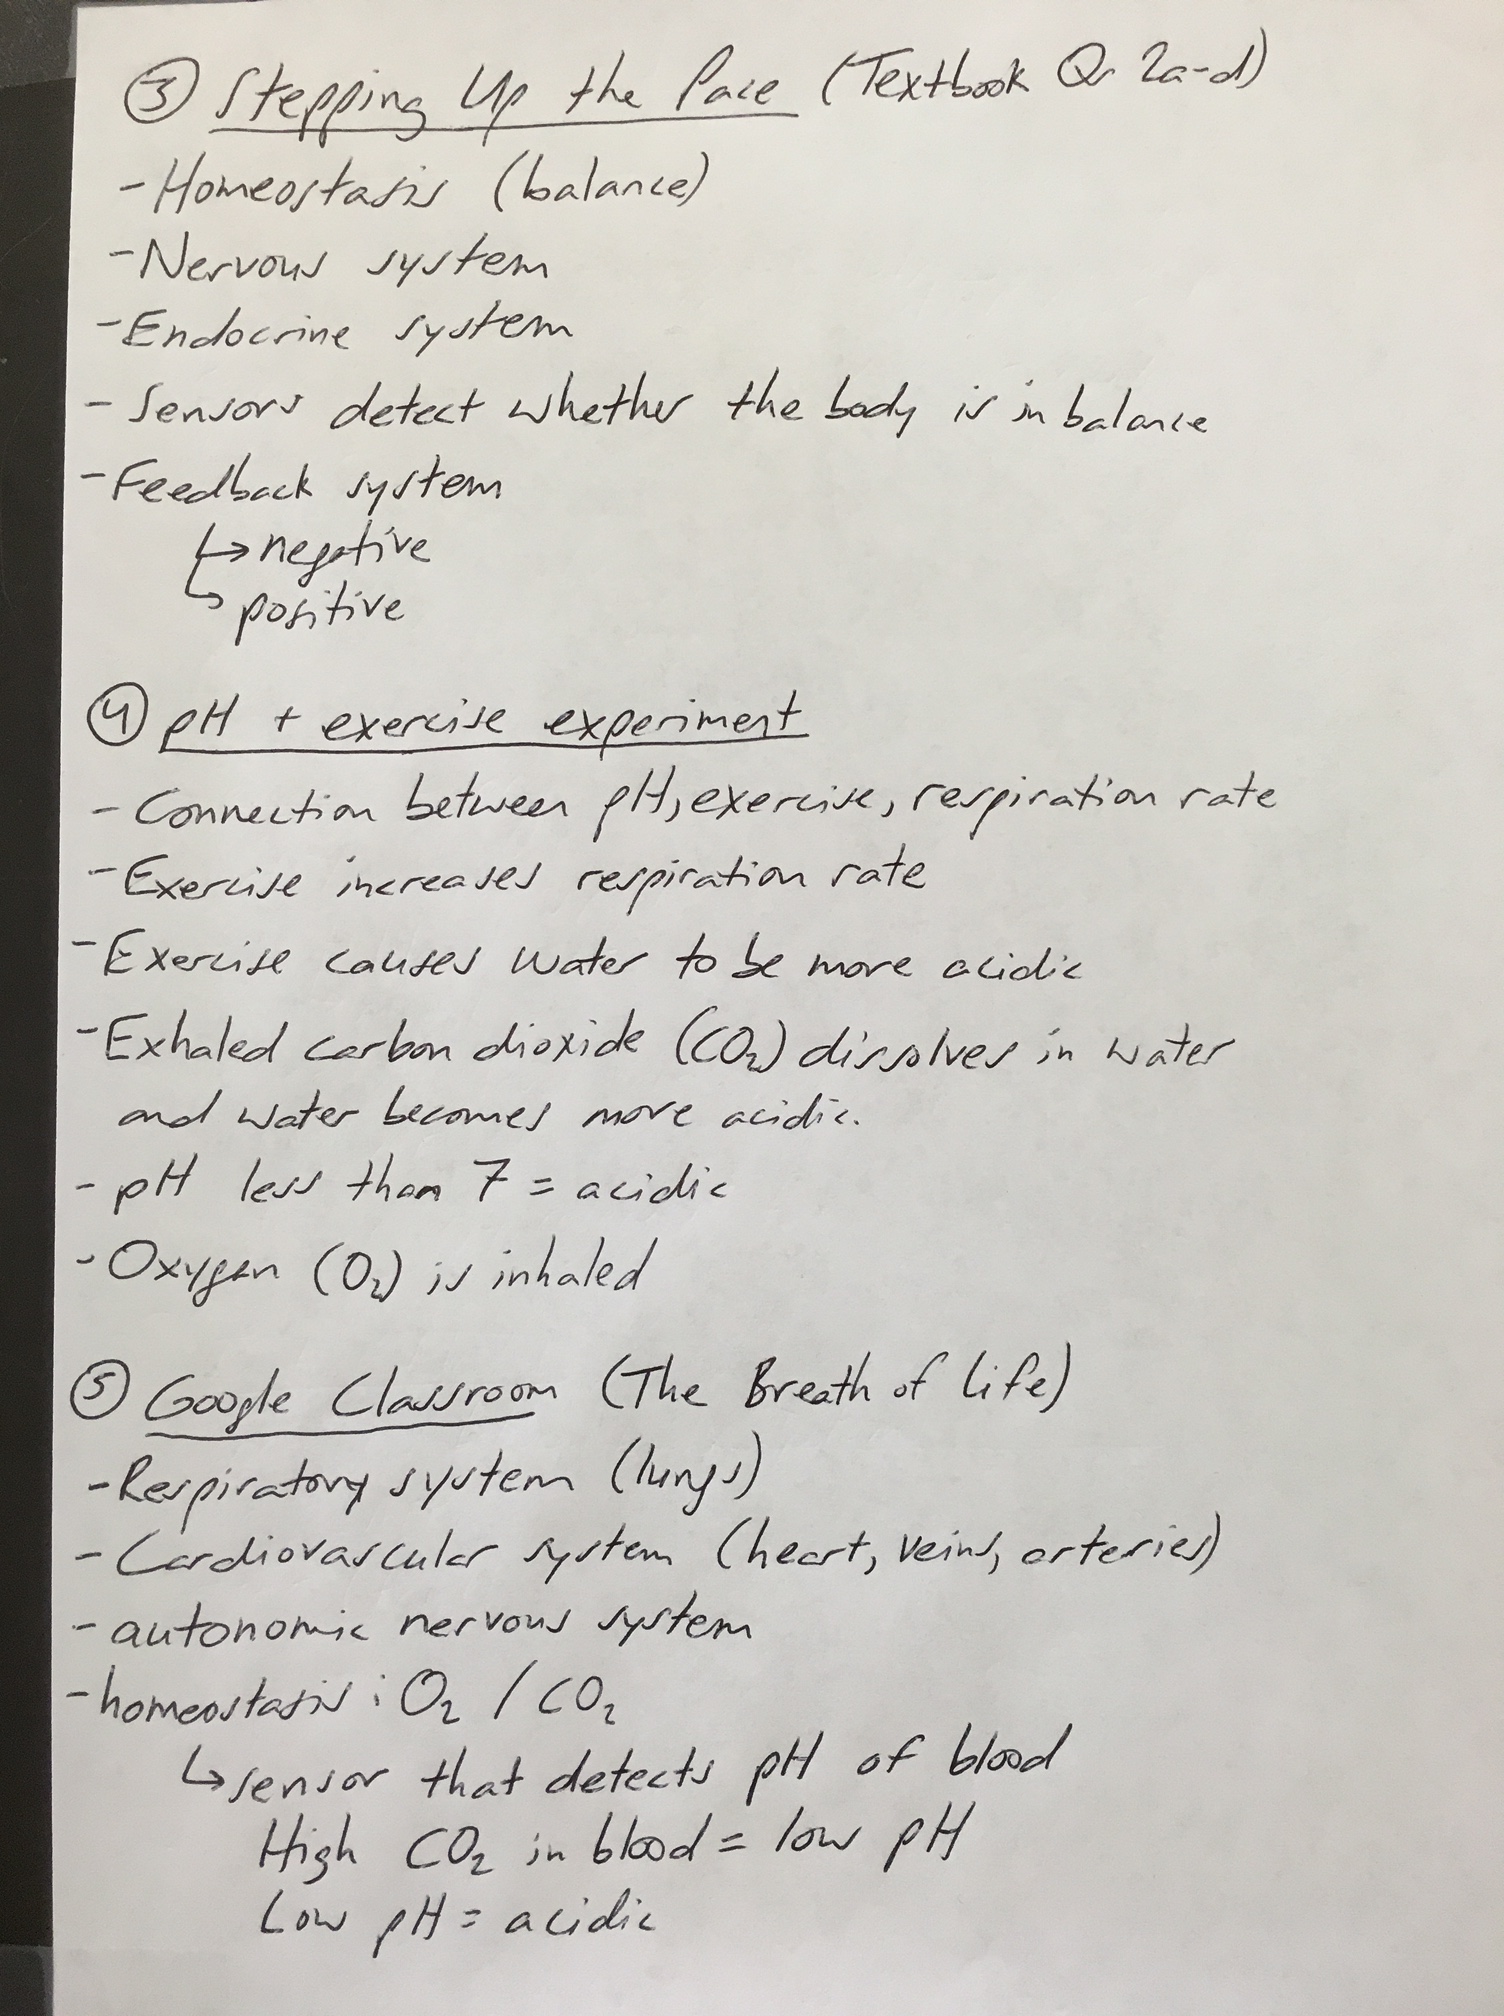 ③ Stepping Up the Pace (Textbook Qs 2a-d)
- Homeostasis (balance)
- Nervous system
- Endocrine system
- Sensors detect whether the body is in balance
- Feedback system
↳ negative
↳ positive
④ pH + exercise experiment
- Connection between pH, exercise, respiration rate
- Exercise increases respiration rate
- Exercise causes water to be more acidic
- Exhaled carbon dioxide (CO₂) dissolves in water
and water becomes more acidic.
- pH less than 7 = acidic
- Oxygen (O₂) is inhaled
⑤ Google Classroom (The Breath of Life)
- Respiratory system (lungs)
- Cardiovascular system (heart, veins, arteries)
- autonomic nervous system
- homeostasis: O₂ / CO₂
↳ sensor that detects pH of blood
High CO₂ in blood = low pH
Low pH = acidic